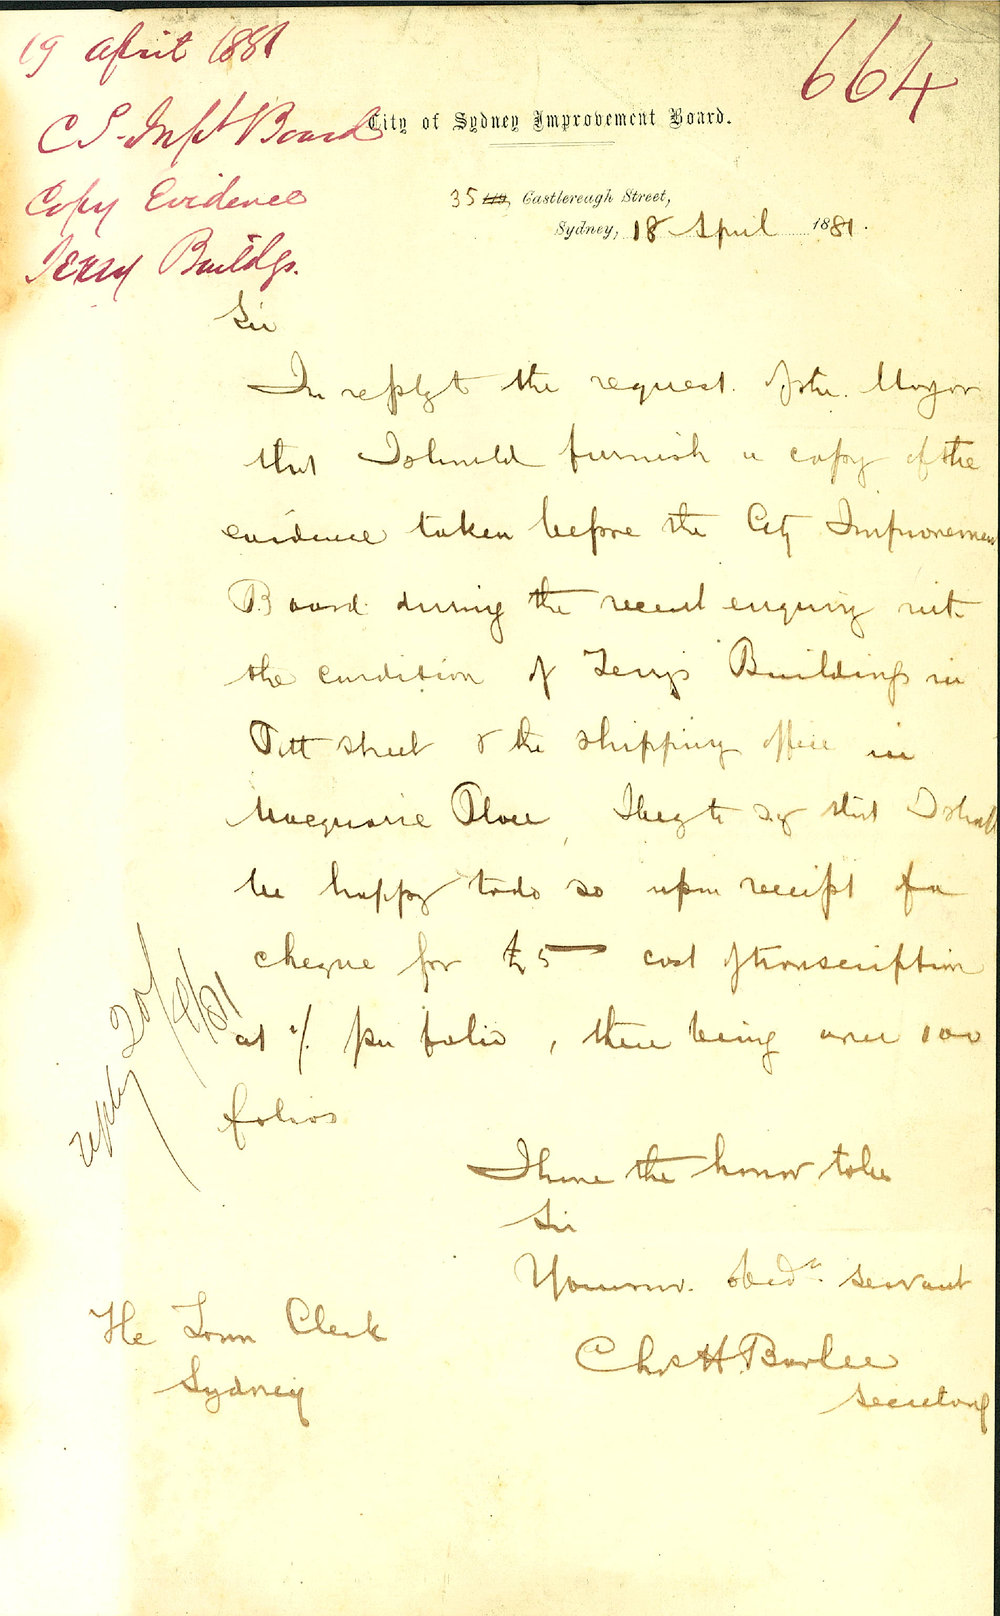 19 April 1881
664
C S. Impt Board
City of Sydney Improvement Board.
Copy Evidence
35 Castlereagh Street,
Sydney, 18 April 1881.
Terry Buildgs.
Sir
In reply to the request of the Mayor
that I should furnish a copy of the
evidence taken before the City Improvement
Board during the recent enquiry into
the condition of Terrys Buildings in
Pitt street & the shipping office in
Macquarie Place, I beg to say that I shall
be happy to do so upon receipt of a
cheque for £5 cost of transcription
at 1/ per folio, there being over 100
folios
reply 20/4/81
I have the honor to be
Sir
Your obedt servant
The Town Clerk
Sydney
Chas H. Barlee
Secretary